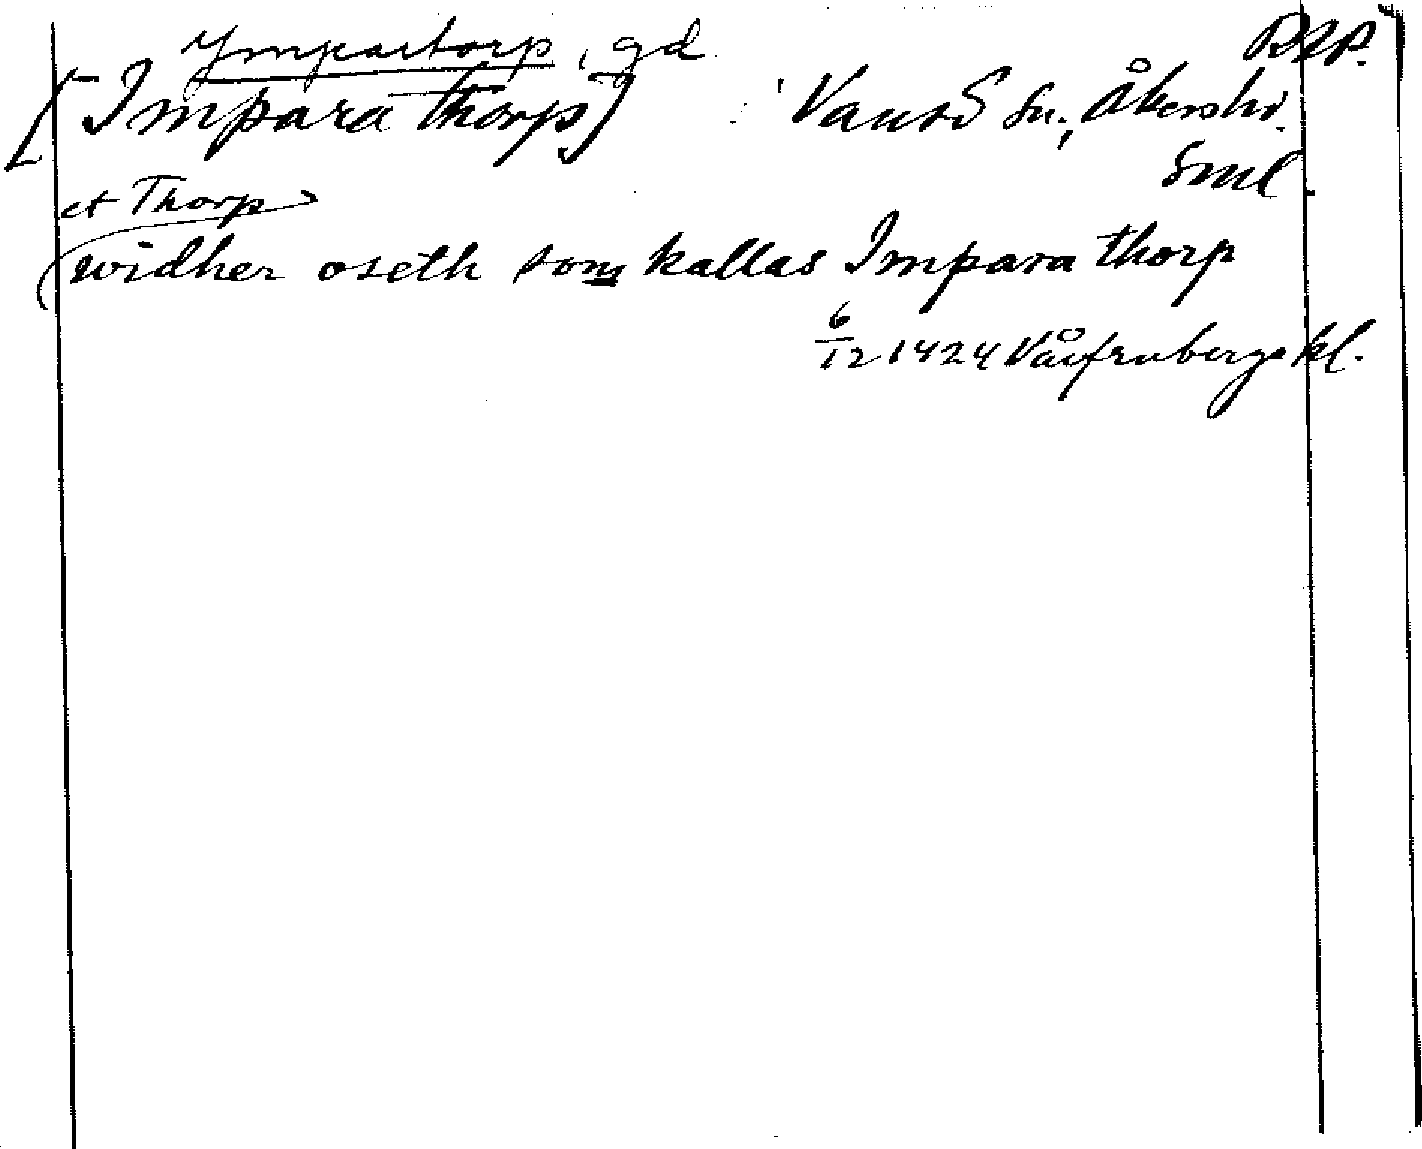 Ympartorp, gd
[Impara thorp] Vansö Sn., Åkershr.
Sml.
et Thorp
widher oseth som kallas Impara thorp
6/12 1424 Vårfrubergs kl.